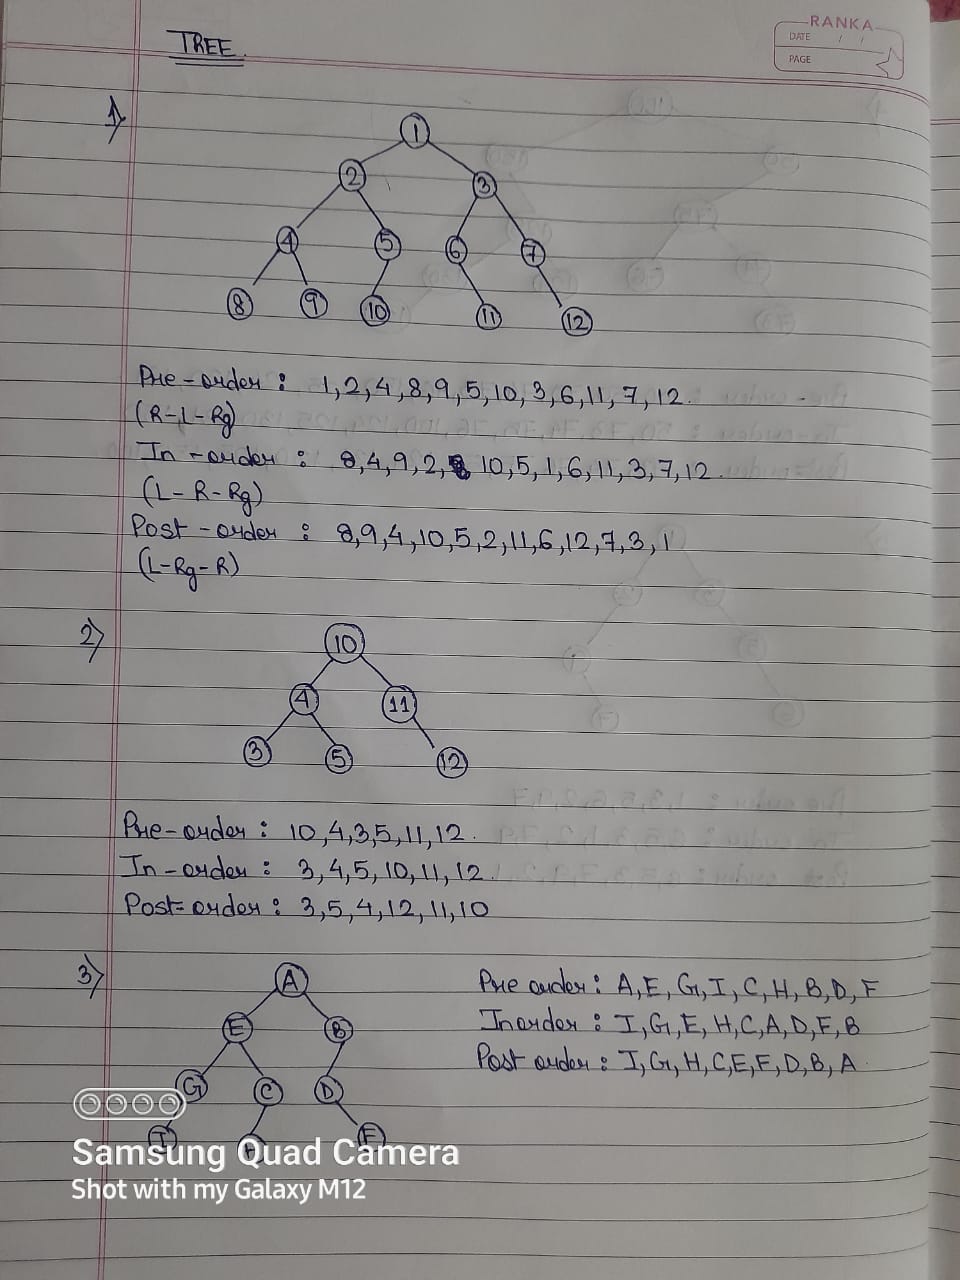 RANKA
DATE / /
PAGE
TREE.
1)
1
2 3
4 5 6 7
8 9 10 11 12
Pre-order : 1,2,4,8,9,5,10,3,6,11,7,12.
(R-L-Rg)
In-order : 8,4,9,2, 10,5,1,6,11,3,7,12.
(L-R-Rg)
Post-order : 8,9,4,10,5,2,11,6,12,7,3,1
(L-Rg-R)
2)
10
4 11
3 5 12
Pre-order : 10,4,3,5,11,12.
In-order : 3,4,5,10,11,12.
Post-order : 3,5,4,12,11,10
3)
A
E B
G C D
I H F
Pre order : A,E,G,I,C,H,B,D,F
Inorder : I,G,E,H,C,A,D,F,B
Post order : I,G,H,C,E,F,D,B,A.
Samsung Quad Camera
Shot with my Galaxy M12